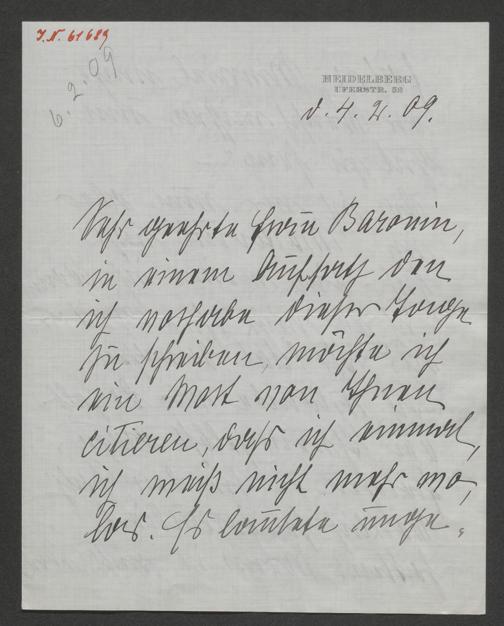 J.N. 61689
6. 2. 09
HEIDELBERG
UFERSTR. 52
d. 4. 2. 09.
Sehr geehrte Frau Baronin,
in einem Aufsatz den
ich vorhabe dieser Tage
zu schreiben, möchte ich
ein Wort von Ihnen
citieren, daß ich einmal,
ich weiß nicht mehr wo,
las. Es lautete unge-